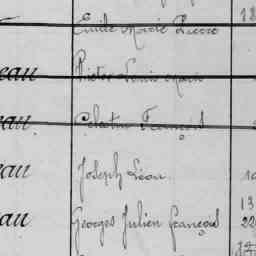 Emile Marie Pierre
eau Victor Louis Marie
eau. Célestin François
eau Joseph Léon
eau Georges Julien François 22